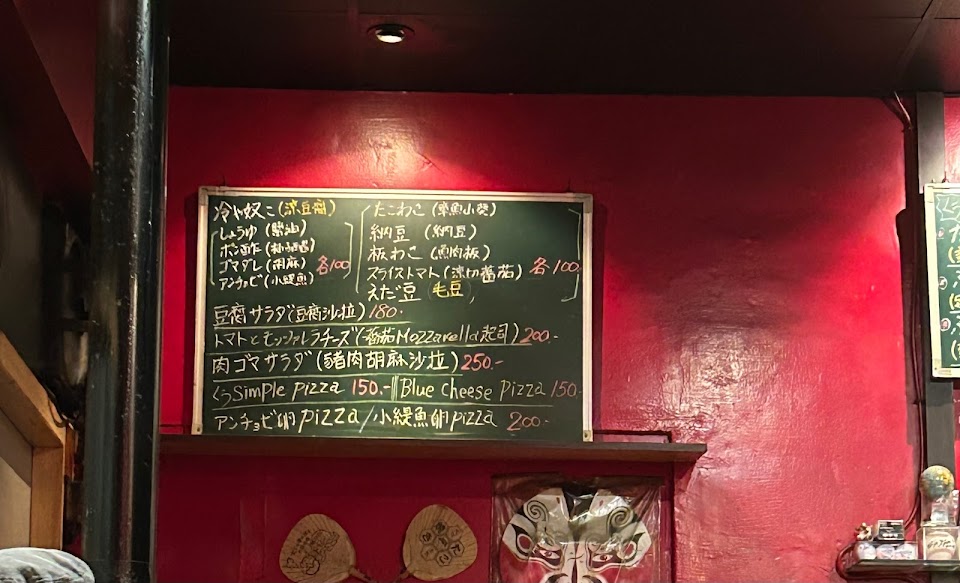 冷や奴こ(涼豆腐)
しょうゆ(醬油)
ポン酢(柑桔醋)
ゴマダレ(胡麻)
アンチョビ(小鯷魚)
各100
たこわさ(章魚小菜)
納豆 (納豆)
板わさ(魚肉板)
スライストマト(涼切番茄)
えだ豆 (毛豆)
各100
豆腐サラダ(豆腐沙拉) 180.-
トマトとモッツァレラチーズ(番茄Mozzarella起司) 200.-
肉ゴマサラダ(豬肉胡麻沙拉) 250.-
くうSimple pizza 150.- Blue cheese pizza 150.-
アンチョビ卵pizza/小鯷魚卵pizza 200.-